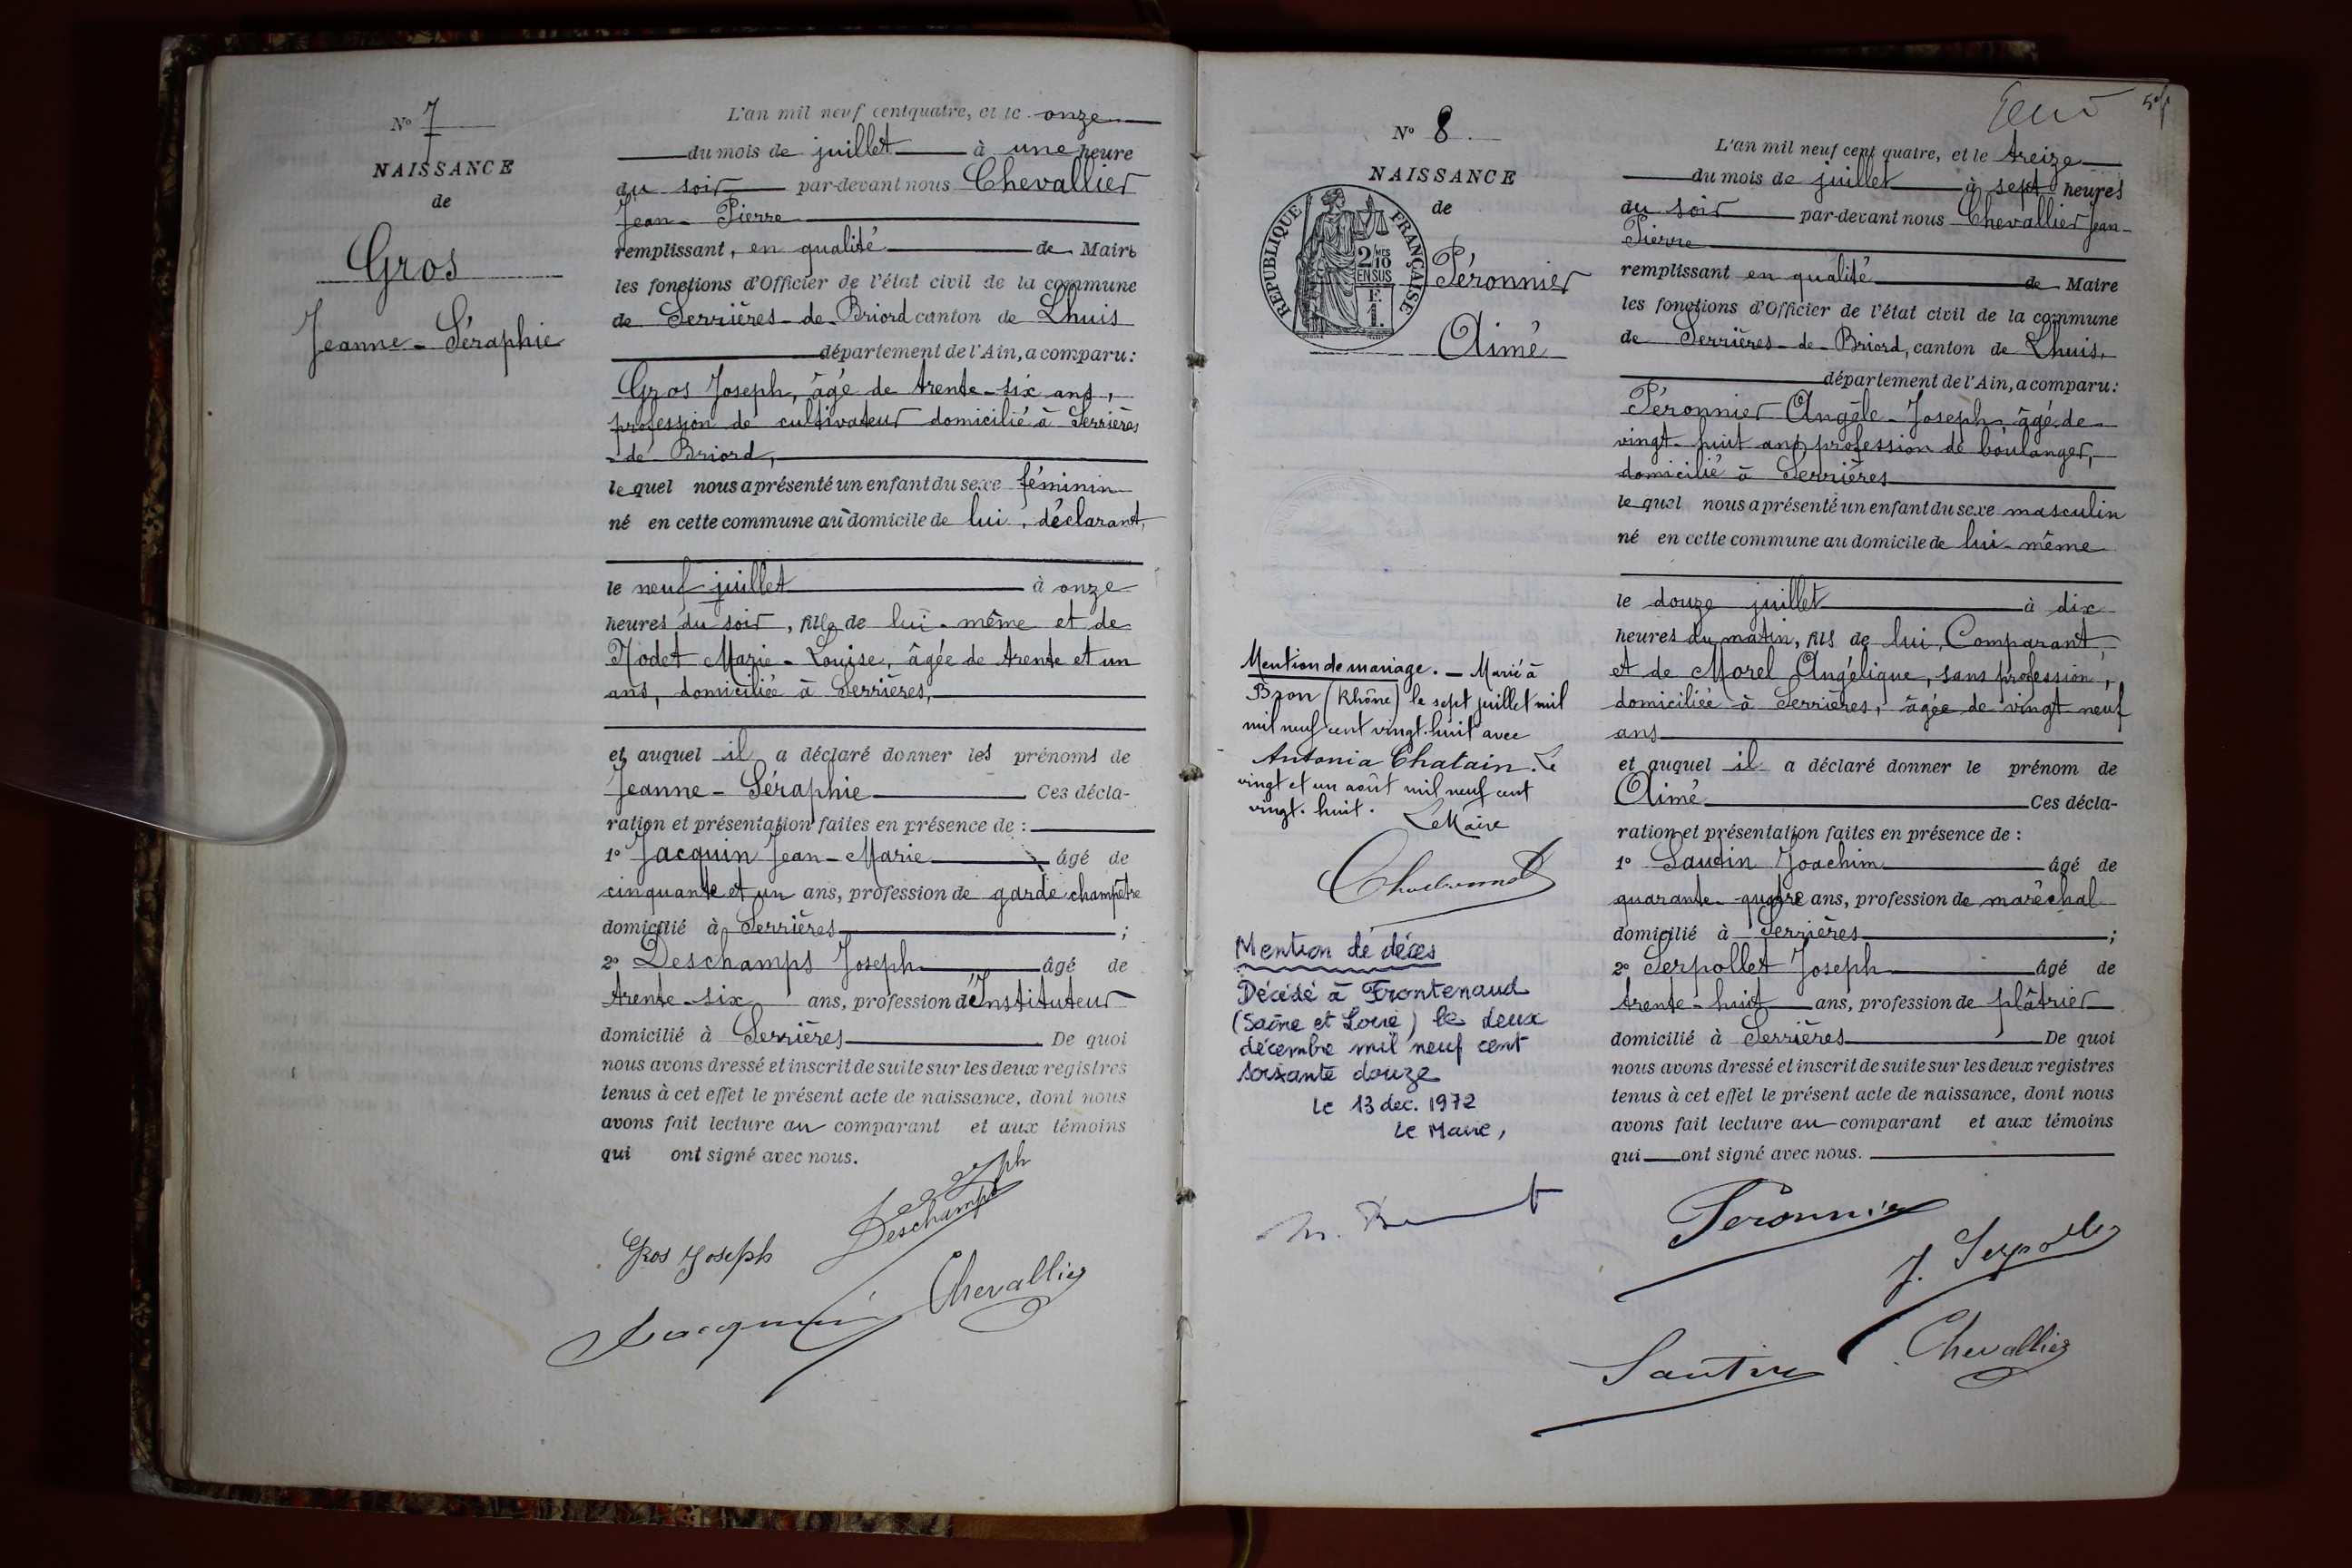 N° 7
NAISSANCE
de
Gros
Jeanne-Séraphie
L'an mil neuf cent quatre, et le onze
du mois de juillet à une heure
du soir par-devant nous Chevallier
Jean-Pierre
remplissant, en qualité de Maire
les fonctions d'Officier de l'état civil de la commune
de Serrières-de-Briord canton de Lhuis
département de l'Ain, a comparu:
Gros Joseph, âgé de trente-six ans,
profession de cultivateur domicilié à Serrières
-de Briord,
lequel nous a présenté un enfant du sexe féminin
né en cette commune au domicile de lui, déclarant,
le neuf juillet à onze
heures du soir, fille de lui-même et de
Nodet Marie-Louise, âgée de trente et un
ans, domiciliée à Serrières,
et auquel il a déclaré donner les prénoms de
Jeanne-Séraphie Ces décla-
ration et présentation faites en présence de :
1° Jacquin Jean-Marie âgé de
cinquante et un ans, profession de garde champêtre
domicilié à Serrières ;
2° Deschamps Joseph âgé de
trente-six ans, profession d'Instituteur
domicilié à Serrières De quoi
nous avons dressé et inscrit de suite sur les deux registres
tenus à cet effet le présent acte de naissance, dont nous
avons fait lecture au comparant et aux témoins
qui ont signé avec nous.
Joseph
Deschamps
Gros Joseph
Chevallier
Jacquin
N° 8
NAISSANCE
de
REPUBLIQUE FRANÇAISE
2/10 MES
EN SUS
F.
1.
Péronnier
Aimé
Mention de mariage. — Marié à
Bron (Rhône) le sept juillet mil
mil neuf cent vingt-huit avec
Antonia Chatain. Le
vingt et un août mil neuf cent
vingt-huit. Le Maire
Mention de décès
Décédé à Frontenaud
(Saône et Loire) le deux
décembre mil neuf cent
soixante douze
Le 13 dec. 1972
Le Maire,
L'an mil neuf cent quatre, et le treize
du mois de juillet à sept heures
du soir par-devant nous Chevallier Jean-
Pierre
remplissant en qualité de Maire
les fonctions d'Officier de l'état civil de la commune
de Serrières-de-Briord, canton de Lhuis,
département de l'Ain, a comparu:
Péronnier Angèle-Joseph, âgé de
vingt-huit ans, profession de boulanger,
domicilié à Serrières
lequel nous a présenté un enfant du sexe masculin
né en cette commune au domicile de lui-même
le douze juillet à dix
heures du matin, fils de lui, Comparant,
et de Morel Angélique, sans profession,
domiciliée à Serrières, âgée de vingt-neuf
ans
et auquel il a déclaré donner le prénom de
Aimé Ces décla-
ration et présentation faites en présence de :
1° Sautin Joachim âgé de
quarante-quatre ans, profession de maréchal
domicilié à Serrières ;
2° Serpollet Joseph âgé de
trente-huit ans, profession de plâtrier
domicilié à Serrières De quoi
nous avons dressé et inscrit de suite sur les deux registres
tenus à cet effet le présent acte de naissance, dont nous
avons fait lecture au comparant et aux témoins
qui ont signé avec nous.
Péronnier
J. Serpollet
Chevallier
Sautin